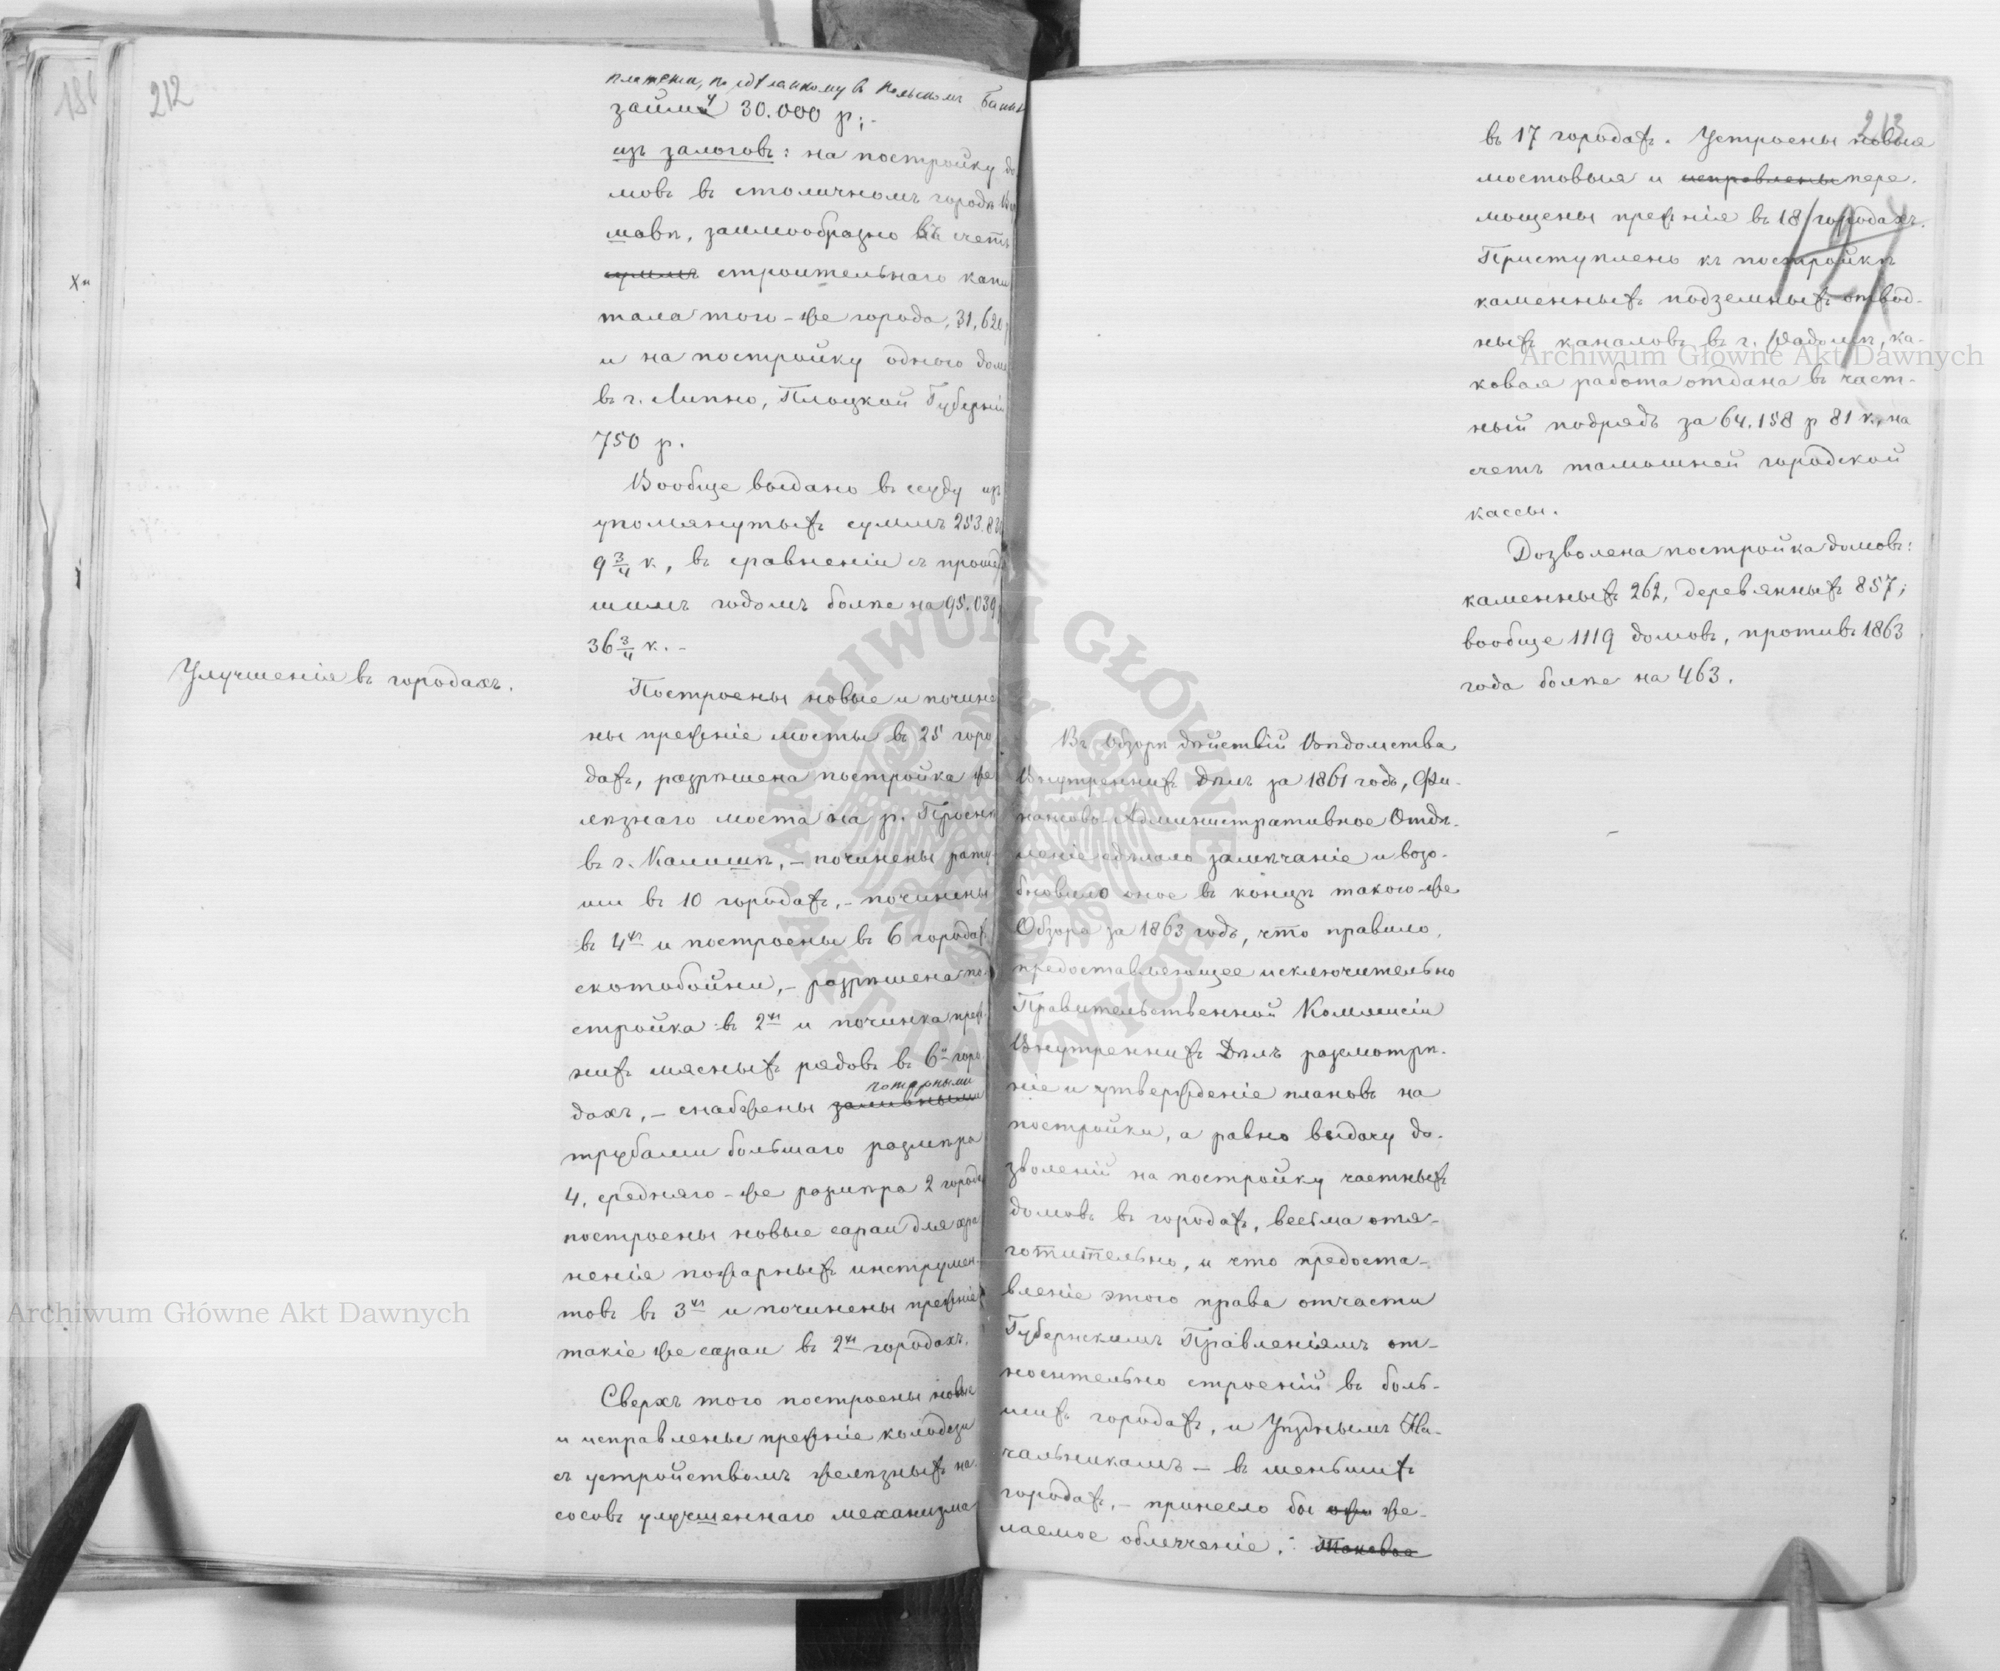 212
платежи, по сдѣланному в Польскомъ Банкѣ
займу 30.000 р;-
изъ залоговъ: на постройку до
мовъ въ столичномъ городѣ Вар
шавѣ, заимообразно въ счетъ
строительнаго капи
тала того-же города, 31,620
и на постройку одного дома
въ г. Липно, Плоцкой Губерніи
750 р.
Вообще выдано въ ссуду изъ
упомянутыхъ суммъ 253.830
9 3/4 к, въ сравненіи съ прошед
шимъ годомъ болѣе на 95.039
36 3/4 к. -
Улучшенія въ городахъ.
Построены новые и почине
ны прежніе мосты въ 25 горо
дахъ, разрѣшена постройка же
лѣзнаго моста на р. Проснѣ
въ г. Калишѣ, - починены рату
ши въ 10 городахъ, - починены
въ 4хъ и построены въ 6 городахъ
скотобойни, - разрѣшена по
стройка въ 2хъ и починка преж
нихъ мясныхъ рядовъ въ 6и горо
дахъ, - снабжены заливными
пожарными
трубами большаго размѣра
4, средняго-же размѣра 2 города
построены новые сараи для хра
ненія пожарныхъ инструмен-
товъ въ 3хъ и починены прежніе
такіе же сараи въ 2хъ городахъ.
Сверхъ того построены новые
и исправлены прежніе колодези
съ устройствомъ желѣзныхъ на
сосовъ улучшеннаго механизма
213
въ 17 городахъ. Устроены новыя
мостовыя и исправлены пере.
мощены прежнія въ 18 городахъ.
Приступлено къ постройкѣ
каменныхъ подземныхъ отвод-
ныхъ каналовъ въ г. Радомѣ, ка-
ковая работа отдана въ част-
ный подрядъ за 64.158 р 81 к., на
счетъ тамошней городской
кассы.
Дозволена постройка домовъ:
каменныхъ 262, деревянныхъ 857;
вообще 1119 домовъ, противъ 1863
года болѣе на 463.
Въ Обзорѣ дѣйствій Вѣдомства
Внутреннихъ Дѣлъ за 1861 годъ, Фи-
нансово-Административное Отдѣ-
леніе сдѣлало замѣчаніе и возо-
бновило оное въ концѣ такого-же
Обзора за 1863 годъ, что правило,
предоставляющее исключительно
Правительственной Коммисіи
Внутреннихъ Дѣлъ разсмотрѣ-
ніе и утвержденіе плановъ на
постройки, а равно выдачу до-
зволеній на постройку частныхъ
домовъ въ городахъ, весьма отя-
готительно, и что предоста-
вленіе этого права отчасти
Губернскимъ Правленіямъ от-
носительно строеній въ боль-
шихъ городахъ, и Уѣзднымъ На-
чальникамъ - въ меньшихъ
городахъ, - принесло бы же-
лаемое облегченіе. Таковое
Archiwum Główne Akt Dawnych
Archiwum Główne Akt Dawnych
ARCHIWUM GŁÓWNE AKT DAWNYCH